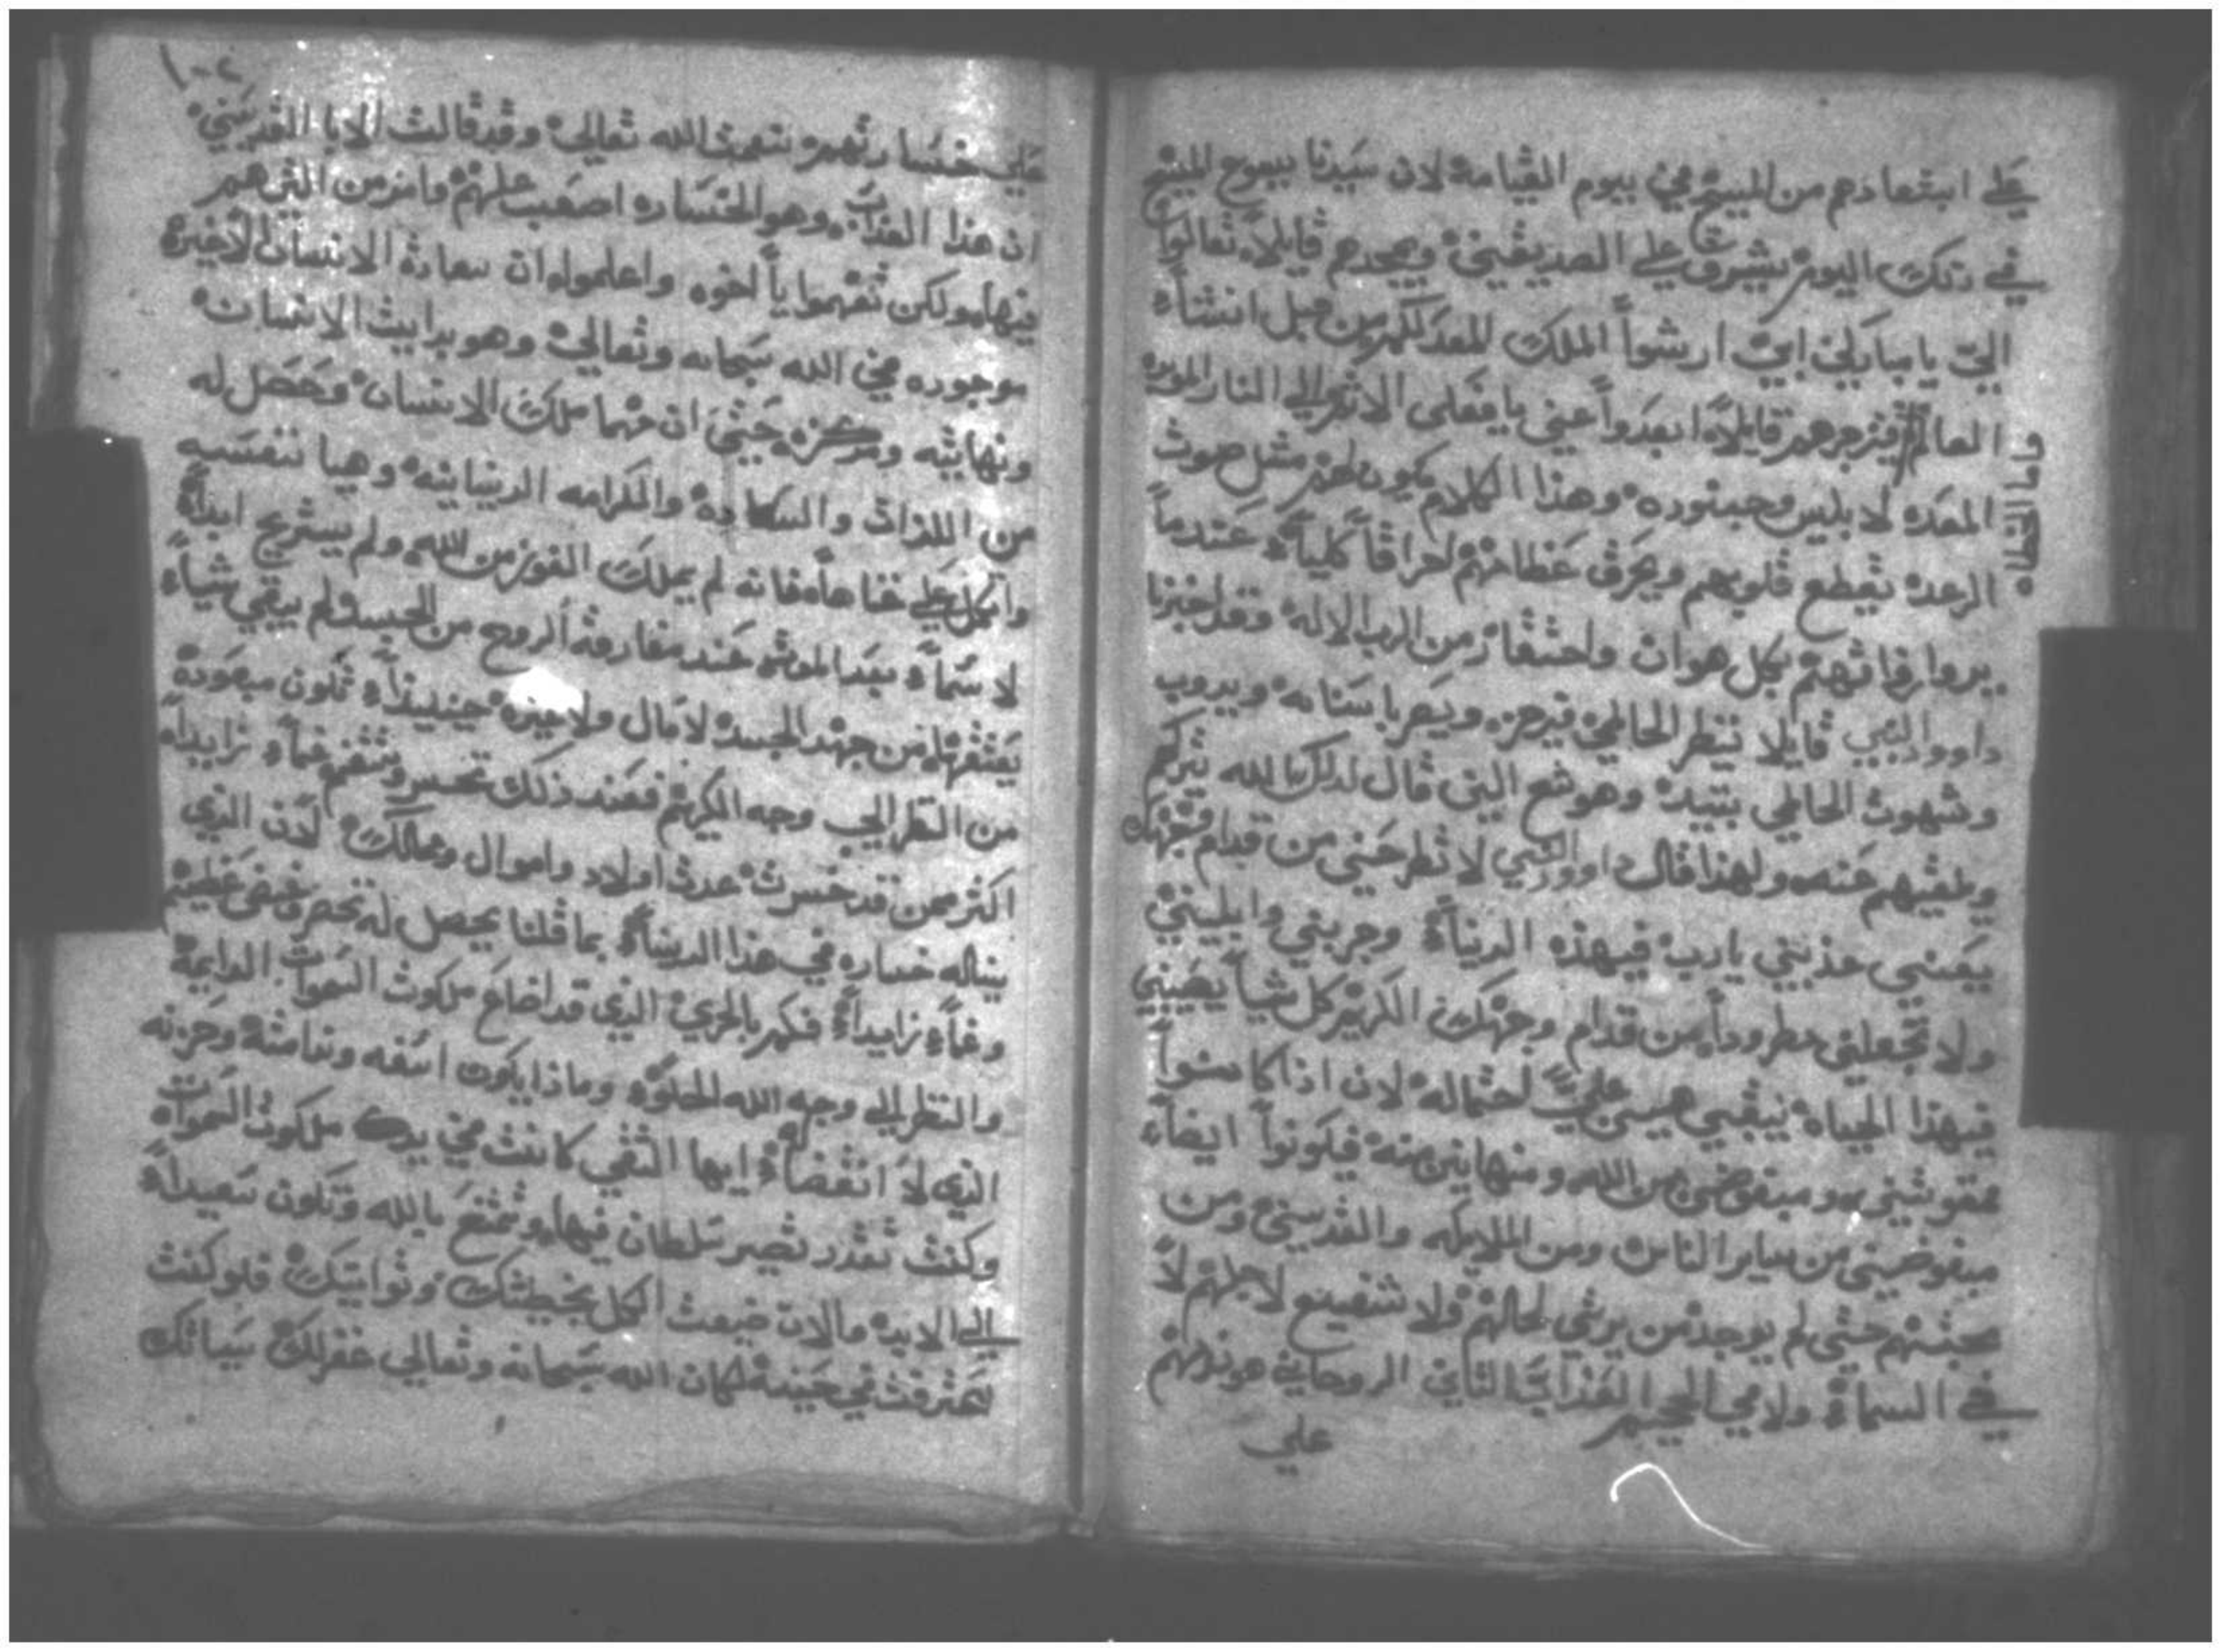 علي ابتعادهم من المسيح في يوم القيامة لان سيدنا يسوع المسيح
في دلك اليوم يشرق علي الصديقين ويمجدهم قايلاً تعالوا
الي يا مباركي ابي ارثوا الملك المعد لكم من قبل انشاء
العالم فيزجرهم قايلاً ابعدوا عني يا فعلى الاثم الي النار الموبده
المعده لابليس وجنوده وهذا الكلام يكون لهم مثل صوت
الرعد تقطع قلوبهم ويحرق عظامهم احراقاً كلياً عندما
يروا رفاتهم بكل هوان واحتقار من الرب الاله وقد اخبرنا
داوود النبي قايلا ينظر الخاطي فيحزن ويصر باسنانه ويدوب
وشهوت الخاطي تبيد وهوشع النبي قال لدلك الله يتركهم
ويلقيهم عنه ولهذا قال داوود النبي لا تطرحني من قدام وجهك
يعني عذبني يارب فيهذه الدنيا وجربني وابليني
ولا تجعلني مطروداً من قدام وجهك الكريم كل شيا يصيبني
فيهذا الحياه يبقي هين علي احتماله لان اذا كانوا
ممقوتين ومبغوضين من الله ومنهانين منه فيكونوا ايضاً
مبغوضين من ساير الناس ومن الملايكه والقديسين ومن
محبتهم حتي لم يوجد من يرثي لحالهم ولا شفيع لاجلهم لا
في السماء ولا في الجحيم العذاب الثاني الروحاني هو نوحهم
علي
١٠٢
علي خسارتهم نعمت الله تعالي وقد قالت الابا القديسين
ان هذا العذاب وهو الخساره اصعب عليهم وامر من التي هم
فيها ولكن تفهموا يا اخوه واعلموا ان سعادة الانسان الاخيره
موجوده في الله سبحانه وتعالي وهو بدايت الانسان
ونهايته ومركزه حتي ان مهما ملك الانسان وحصل له
من اللذات والسعاده والكرامه الدنيانيه وهيا نفسه
واتكل علي غناه فانه لم يملك الفوز من الله ولم يستريح ابداً
لا سماء بعد الموت عند مفارقة الروح من الجسد ولم يبقي شياً
يعتقها من جهد الجسد لا مال ولا غيره حينيذاً تكون مبعوده
من النظر الي وجه الكريم فعند ذلك تحسر وتغتم غماً زايداً
اكثر ممن قد خسرت عدت اولاد واموال وممالك لان الذي
يناله خساره في هذا الدنيا كما قلنا يحصل له تحصر عظيم
وغماً زايداً فكم بالحري الذي قد اضاع ملكوت السموات الدايمة
والنظر الي وجه الله الحلوه وماذا يكون اسفه وندامته وحزنه
الذي لا انقضاء له ايها الشقي كانت في يدك ملكوت السموات
وكنت تقدر تصير سلطان فيها وتمتع بالله وتكون سعيداً
الي الابد والان ضيعت الكل بخطيتك وتوانيك فلو كنت
اعترفت في حينه لكان الله سبحانه وتعالي غفر لك سياتك